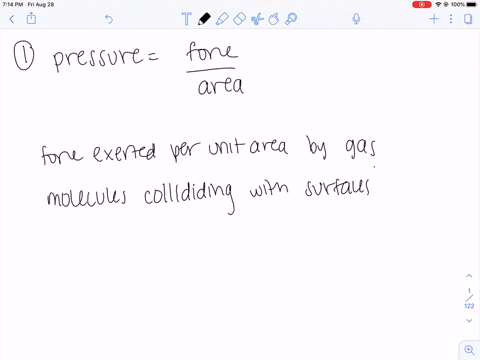 7:14 PM Fri Aug 28
100%
① pressure = force
area
force exerted per unit area by gas
molecules collididing with surfaces
1
/
122